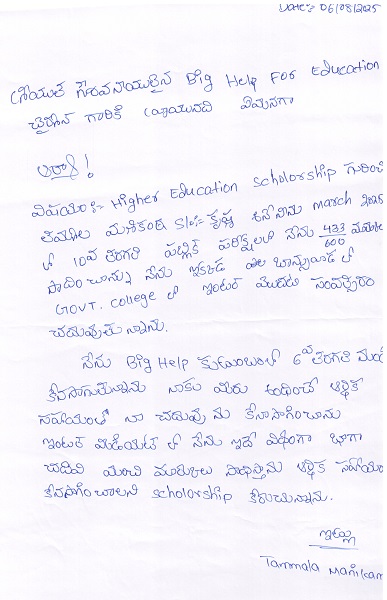 Date:- 06/08/2025
శ్రీయుత గౌరవనీయులైన Big Help For Education
చైర్మన్ గారికి వ్రాయునది ఏమనగా
ఆర్యా!
విషయం:- Higher Education scholorship గురించి
తమ్మాల మణికంఠ S/o:- కృష్ణ అనే నేను march 2025
లో 10వ తరగతి పబ్లిక్ పరీక్షలలో నేను 433/600 మార్కులు
సాధించాను నేను ఇక్కడ
Govt. College లో ఇంటర్ మొదటి సంవత్సరం
చదువుతున్నాను.
నేను Big Help కుటుంబంలో 6వ తరగతి నుండి
కొనసాగుతున్నాను నాకు మీరు అందించే ఆర్థిక
సహాయంతో నా చదువును కొనసాగించాను
ఇంటర్ మీడియట్ లో నేను ఇదే విధంగా బాగా
చదివి మంచి మార్కులు సాధిస్తాను ఆర్థిక సహాయం
కొనసాగించాలని scholorship కోరుచున్నాను.
ఇట్లు
Tammala Manikan